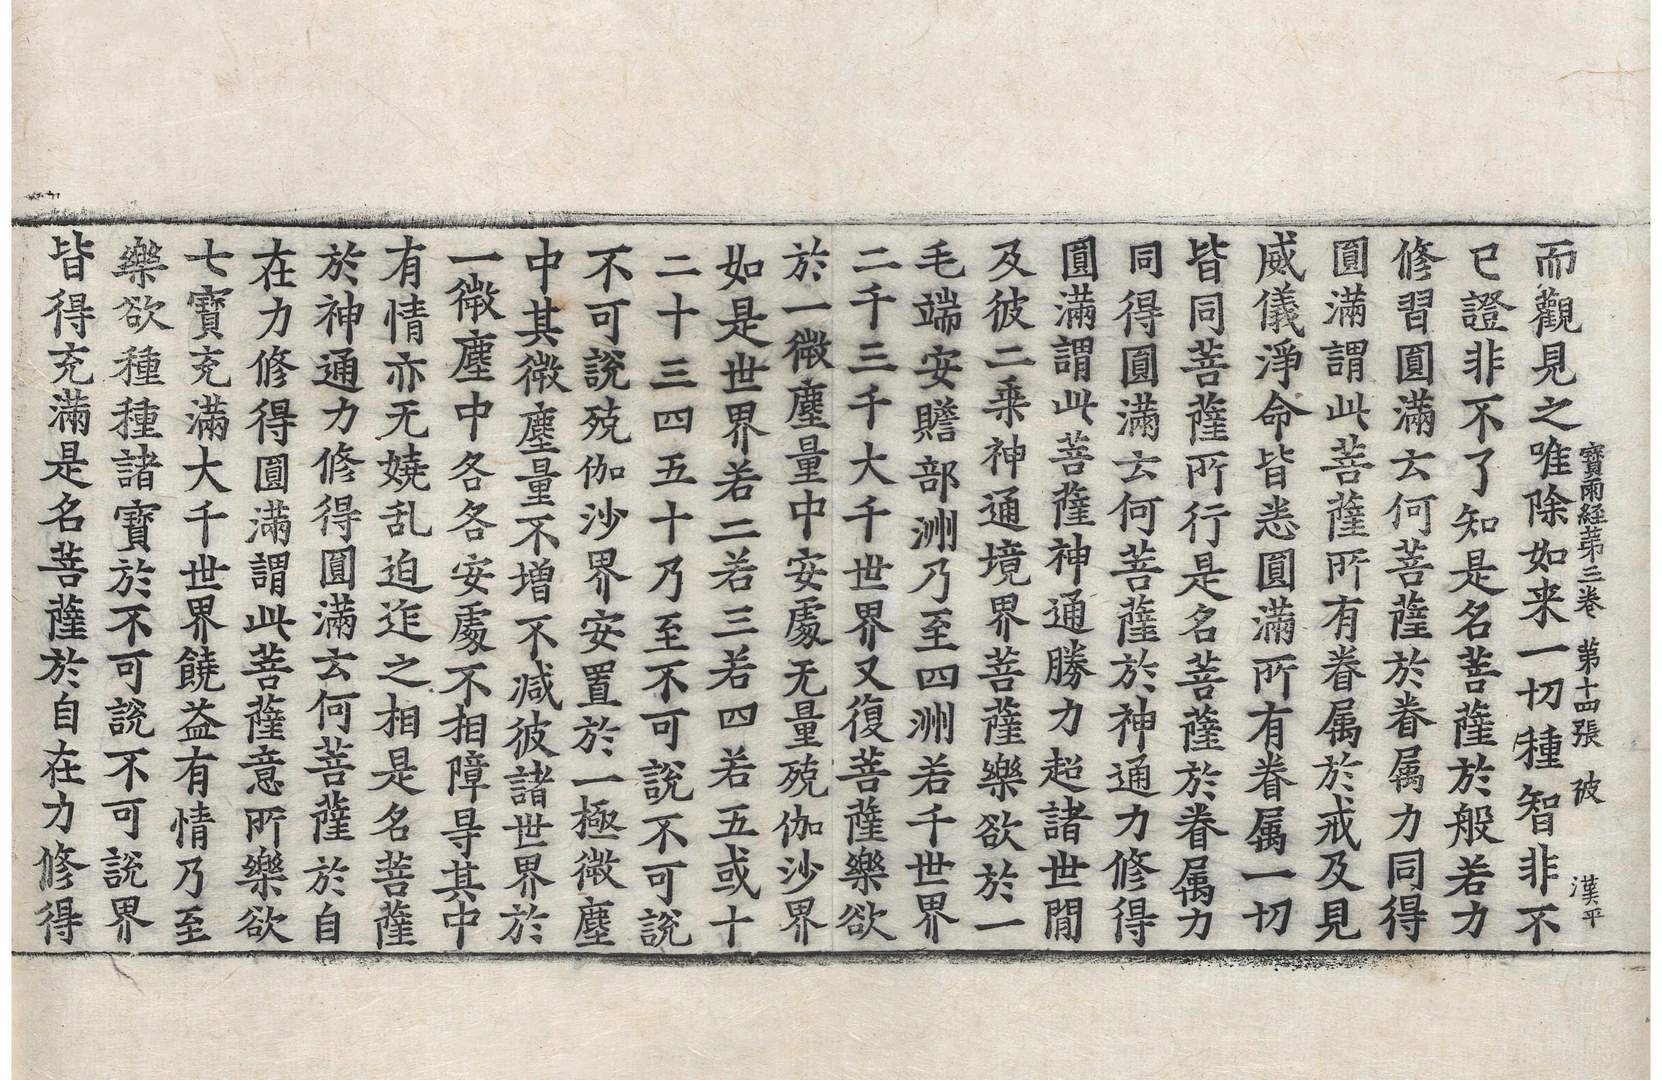 寳雨経苐三卷 第十四張 彼 漢平
而觀見之唯除如来一切種智非不
已證非不了知是名菩薩於般若力
修習圓滿云何菩薩於眷属力同得
圓滿謂此菩薩所有眷属於戒及見
威儀淨命皆悉圓滿所有眷属一切
皆同菩薩所行是名菩薩於眷属力
同得圓滿云何菩薩於神通力修得
圓滿謂此菩薩神通勝力超諸世間
及彼二乗神通境界菩薩樂欲於一
毛端安贍部洲乃至四洲若千世界
二千三千大千世界又復菩薩樂欲
於一微塵量中安處无量殑伽沙界
如是世界若二若三若四若五或十
二十三四五十乃至不可說不可說
不可說殑伽沙界安置於一極微塵
中其微塵量不增不減彼諸世界於
一微塵中各各安處不相障㝵其中
有情亦无嬈乱迫迮之相是名菩薩
於神通力修得圓滿云何菩薩於自
在力修得圓滿謂此菩薩意所樂欲
七寶充滿大千世界饒益有情乃至
樂欲種種諸寶於不可說不可說界
皆得充滿是名菩薩於自在力修得